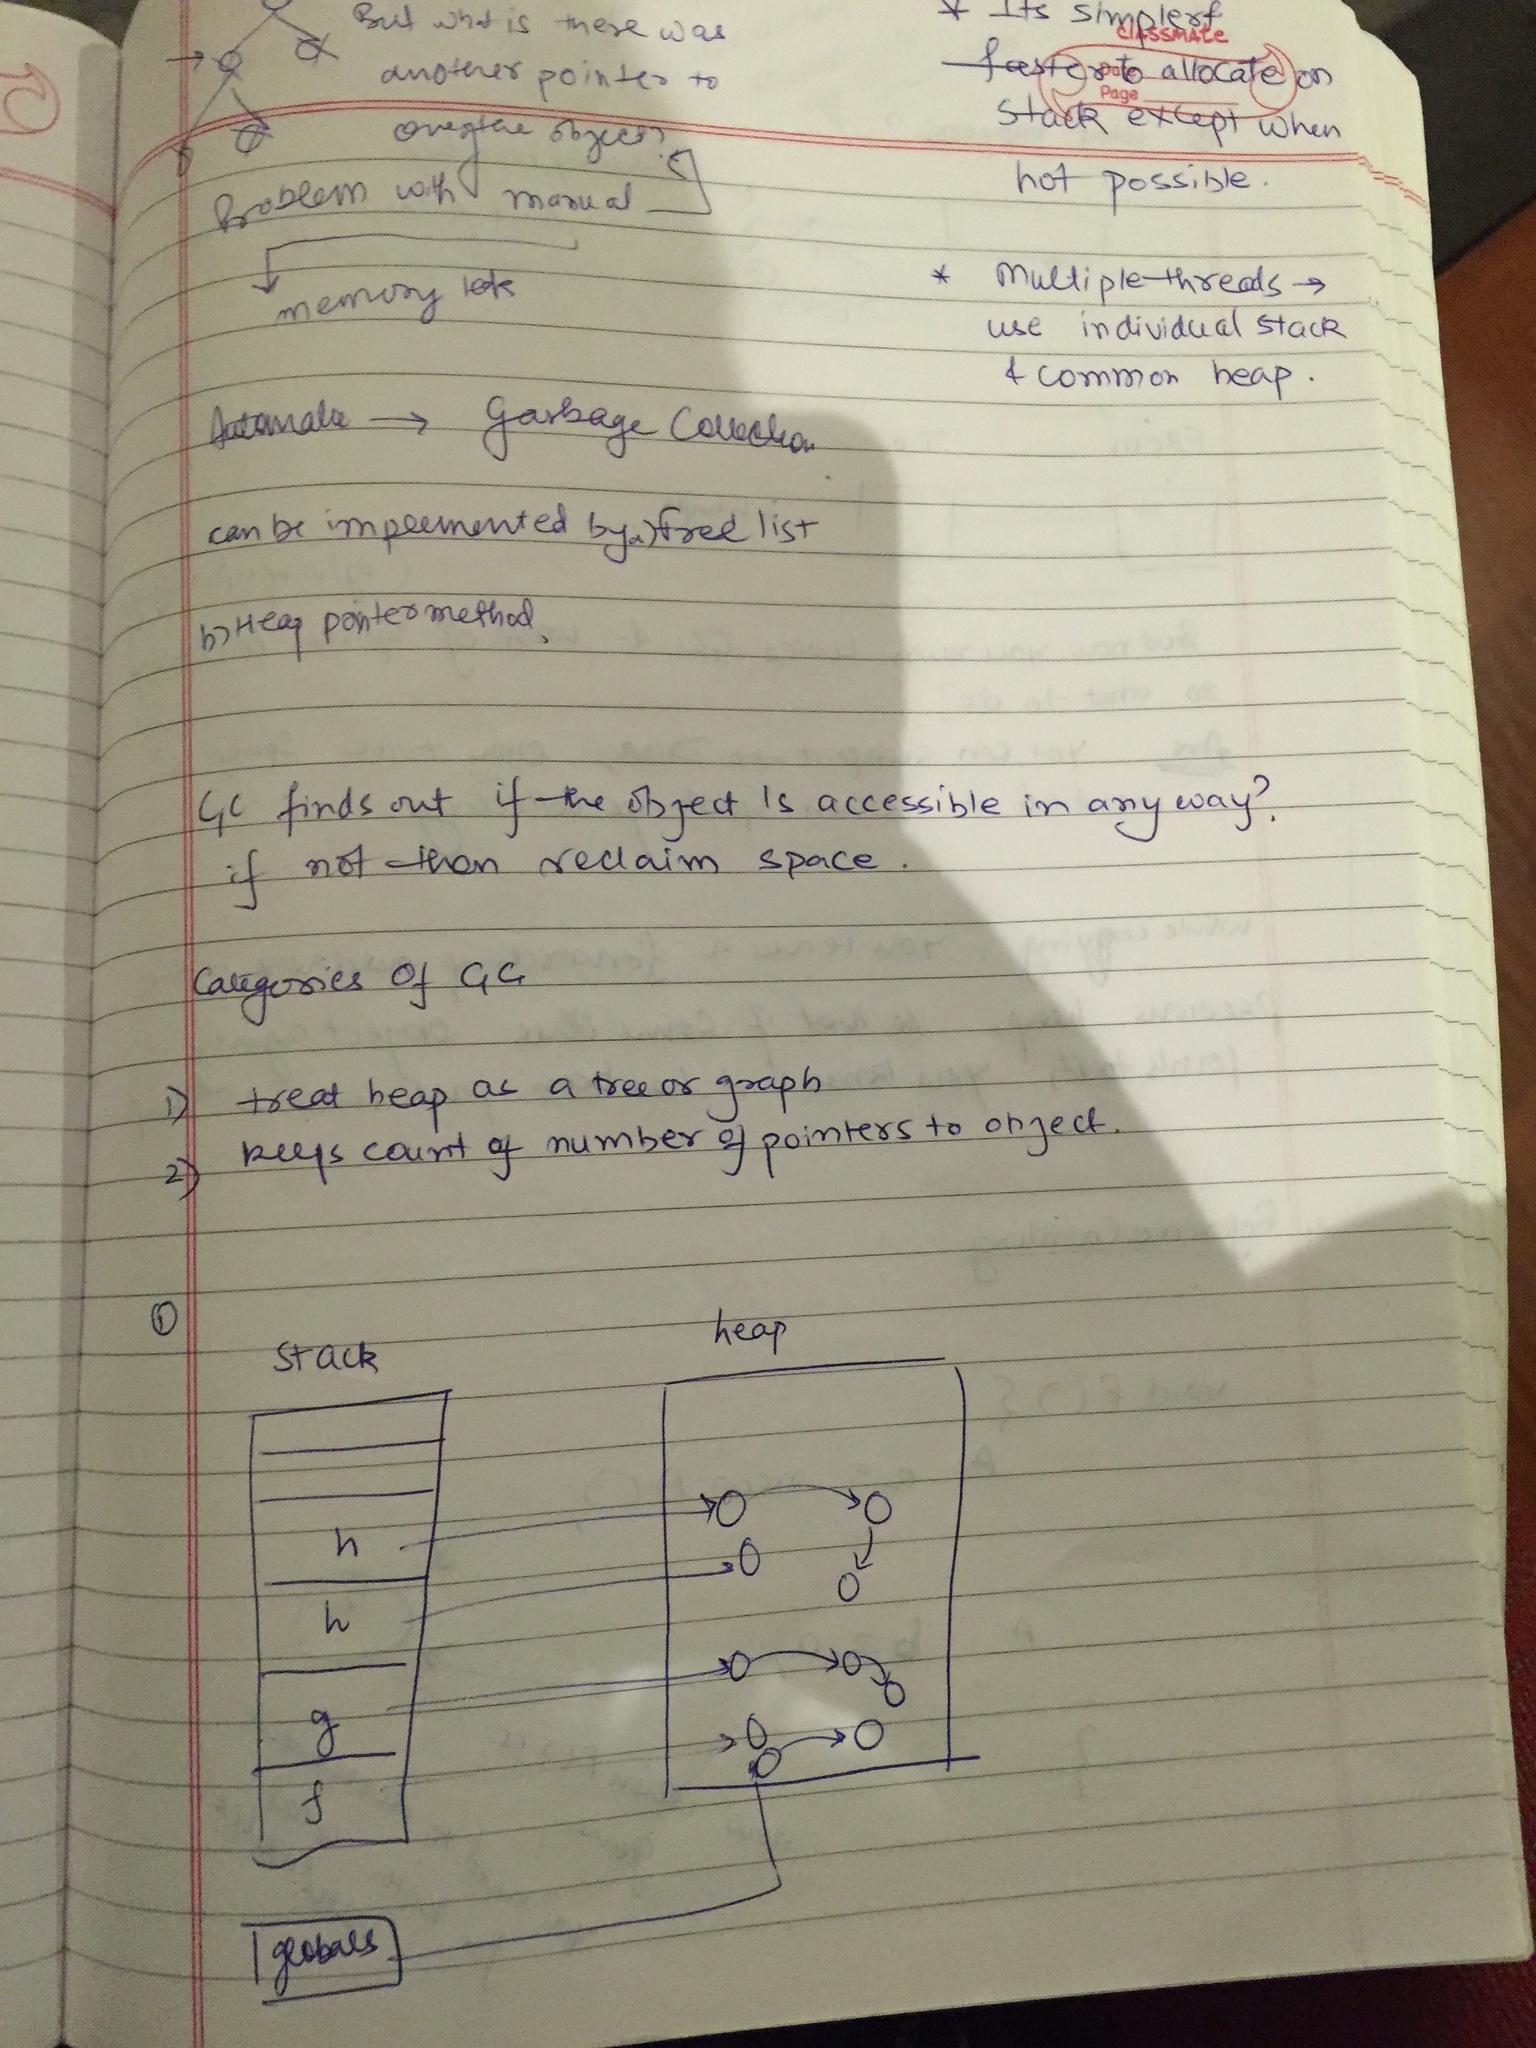 But what is there was
another pointer to
over the object?
Problem with manual
memory leaks
* Its simpler &
faster to allocate on
stack except when
not possible.
classmate
Date
Page
* Multiple threads →
use individual stack
& common heap.
Automatic → Garbage Collection
can be impeemented by a) free list
b) Heap pointer method.
GC finds out if the object is accessible in any way?
if not than reclaim space.
Categories of GC
1) treat heap as a tree or graph
2) keeps count of number of pointers to object.
①
stack
heap
h
h
g
f
globals